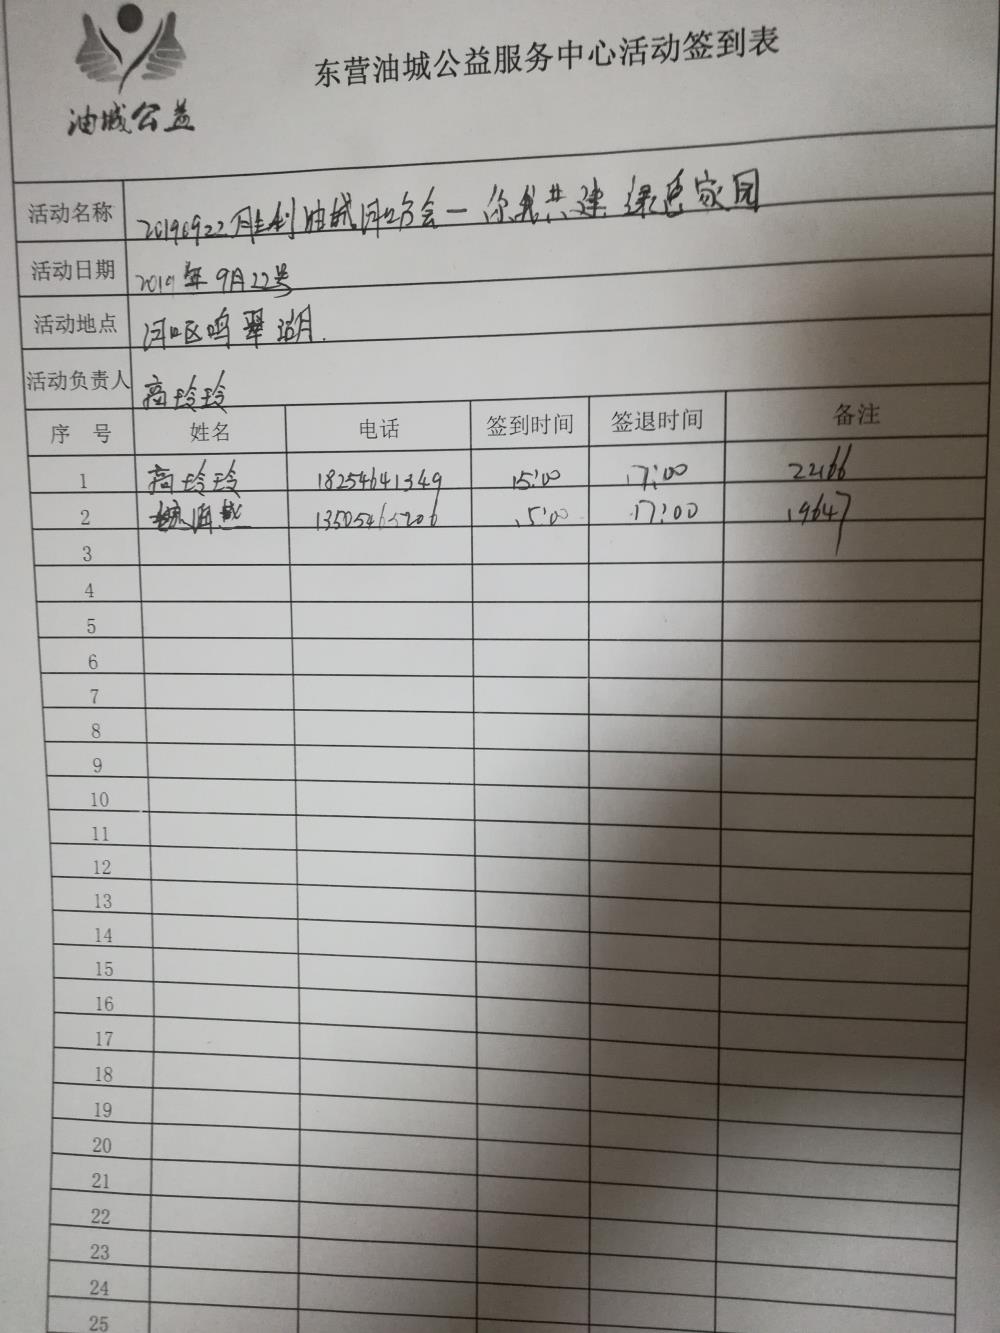 油城公益
东营油城公益服务中心活动签到表
活动名称 20190922胜利油城河口分会一你我共建绿色家园
活动日期 2019年9月22号
活动地点 河口区鸣翠湖.
活动负责人 高玲玲
序号 姓名 电话 签到时间 签退时间 备注
1 高玲玲 18254641349 15:00 17:00 22166
2 海燕 13505465206 15:00 17:00 19647
3
4
5
6
7
8
9
10
11
12
13
14
15
16
17
18
19
20
21
22
23
24
25